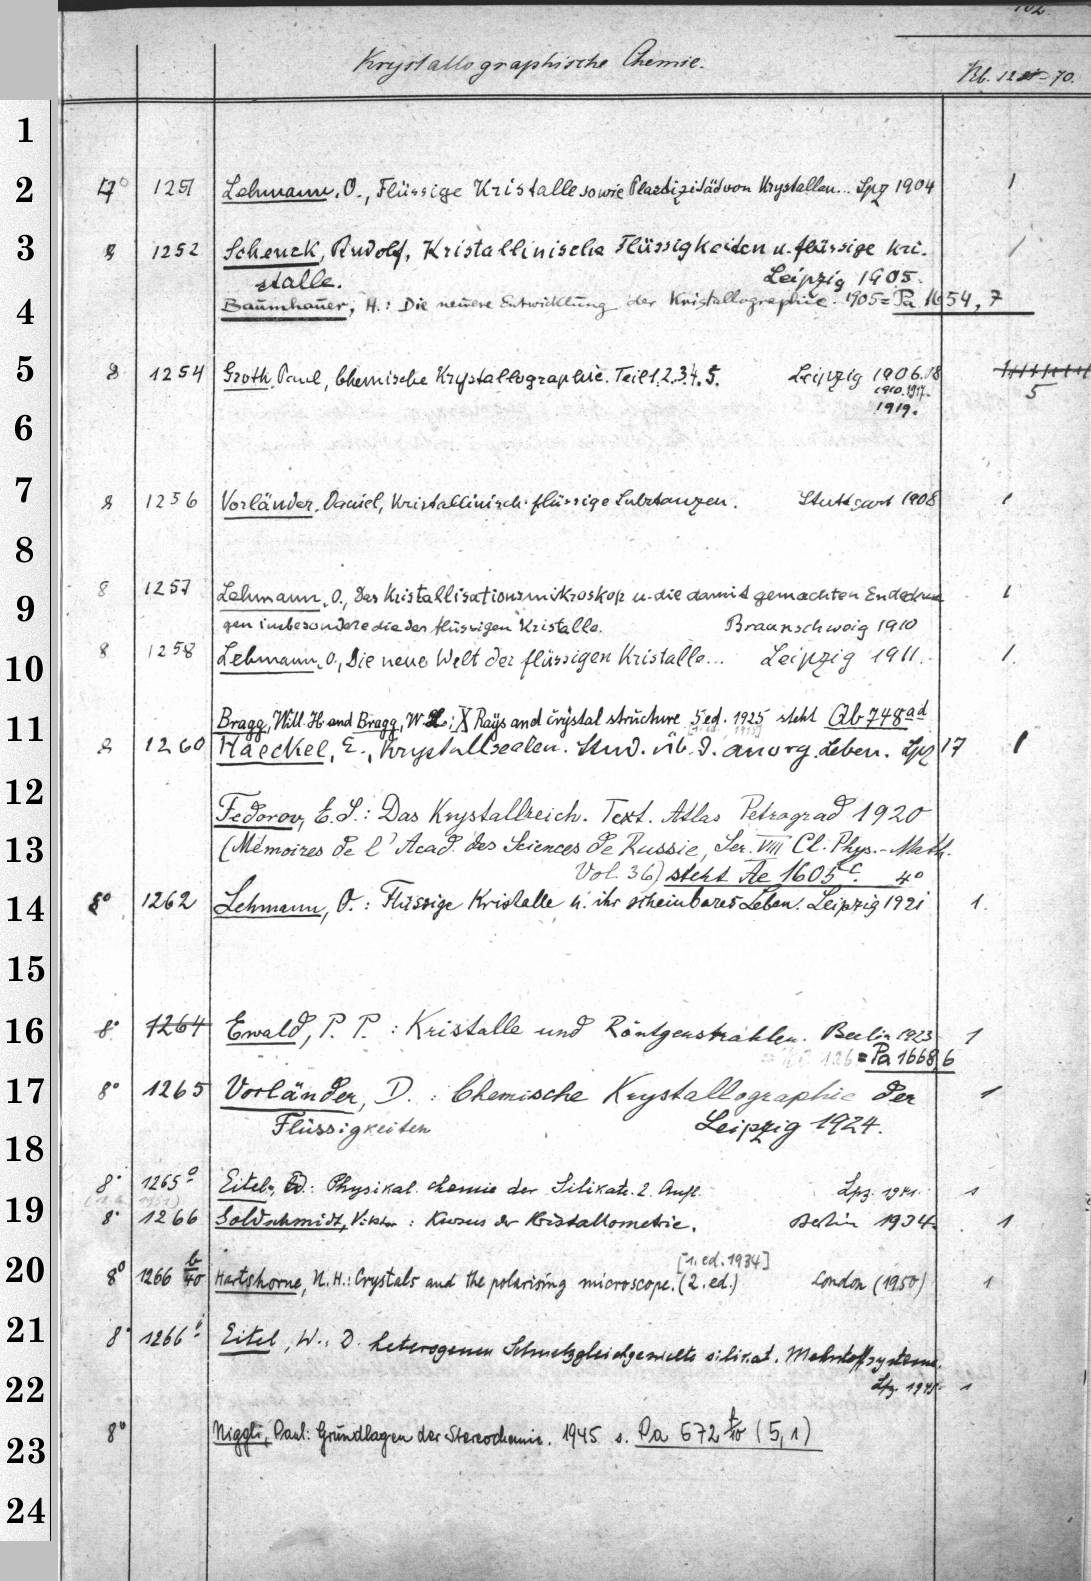 102.
Krystallographische Chemie.
Kb. 1251-70.
1
2
4° 1251 Lehmann, O., Flüssige Kristalle sowie Plastizität von Krystallen... Lpz 1904 1
3
8 1252 Schenck, Rudolf, Kristallinische Flüssigkeiten u. flüssige Kri- 1
stalle. Leipzig 1905.
4
Baumhauer, H.: Die neuere Entwicklung der Kristallographie. 1905 = Pa 1654, 7
5
8 1254 Groth, Paul, Chemische Krystallographie. Teil 1.2.3.4.5. Leipzig 1906.08
1910.1917.
5
1919.
6
7
8 1256 Vorländer, Daniel, Kristallinisch-flüssige Substanzen. Stuttgart 1908 1
8
8 1257 Lehmann, O., Das Kristallisationsmikroskop u. die damit gemachten Entdeckun 1
9
gen insbesondere die der flüssigen Kristalle. Braunschweig 1910
10
8 1258 Lehmann, O., Die neue Welt der flüssigen Kristalle... Leipzig 1911. 1.
11
Bragg, Will. H. and Bragg, W. L.; X Rays and crystal structure 5 ed. 1925 steht Qb 748 ad
8 1260 Haeckel, E., Krystallseelen. Stud. üb. d. anorg. Leben. Lpz 17 1
12
Fedorov, E. S.: Das Krystallreich. Text. Atlas Petrograd 1920
13
(Mémoires de l'Acad. des Sciences de Russie, Ser. VIII Cl. Phys.-Math.
Vol. 36) steht Ae 1605 c. 4°
14
8° 1262 Lehmann, O.: Flüssige Kristalle u. ihr scheinbares Leben. Leipzig 1921 1.
15
16
8° 1264 Ewald, P. P.: Kristalle und Röntgenstrahlen. Berlin 1923 1
126 = Pa 1668,6
17
8° 1265 Vorländer, D.: Chemische Krystallographie der 1
Flüssigkeiten Leipzig 1924.
18
8° 1265 Eitel, W.: Physikal. Chemie der Silikate. 2. Aufl. Lpz. 1941. 1
19
8° 1266 Goldschmidt, Viktor: Kursus der Kristallometrie. Berlin 1934. 1
20
[1. ed. 1934]
8° 1266 b/40 Hartshorne, N. H.: Crystals and the polarising microscope. (2. ed.) London (1950) 1
21
8° 1266 i Eitel, W.: D. heterogenen Schmelzgleichgewichte silikat. Mehrstoffsysteme.
22
Lpz. 1945. 1
23
8° Niggli, Paul: Grundlagen der Stereochemie. 1945 s. Pa 672 f/10 (5,1)
24